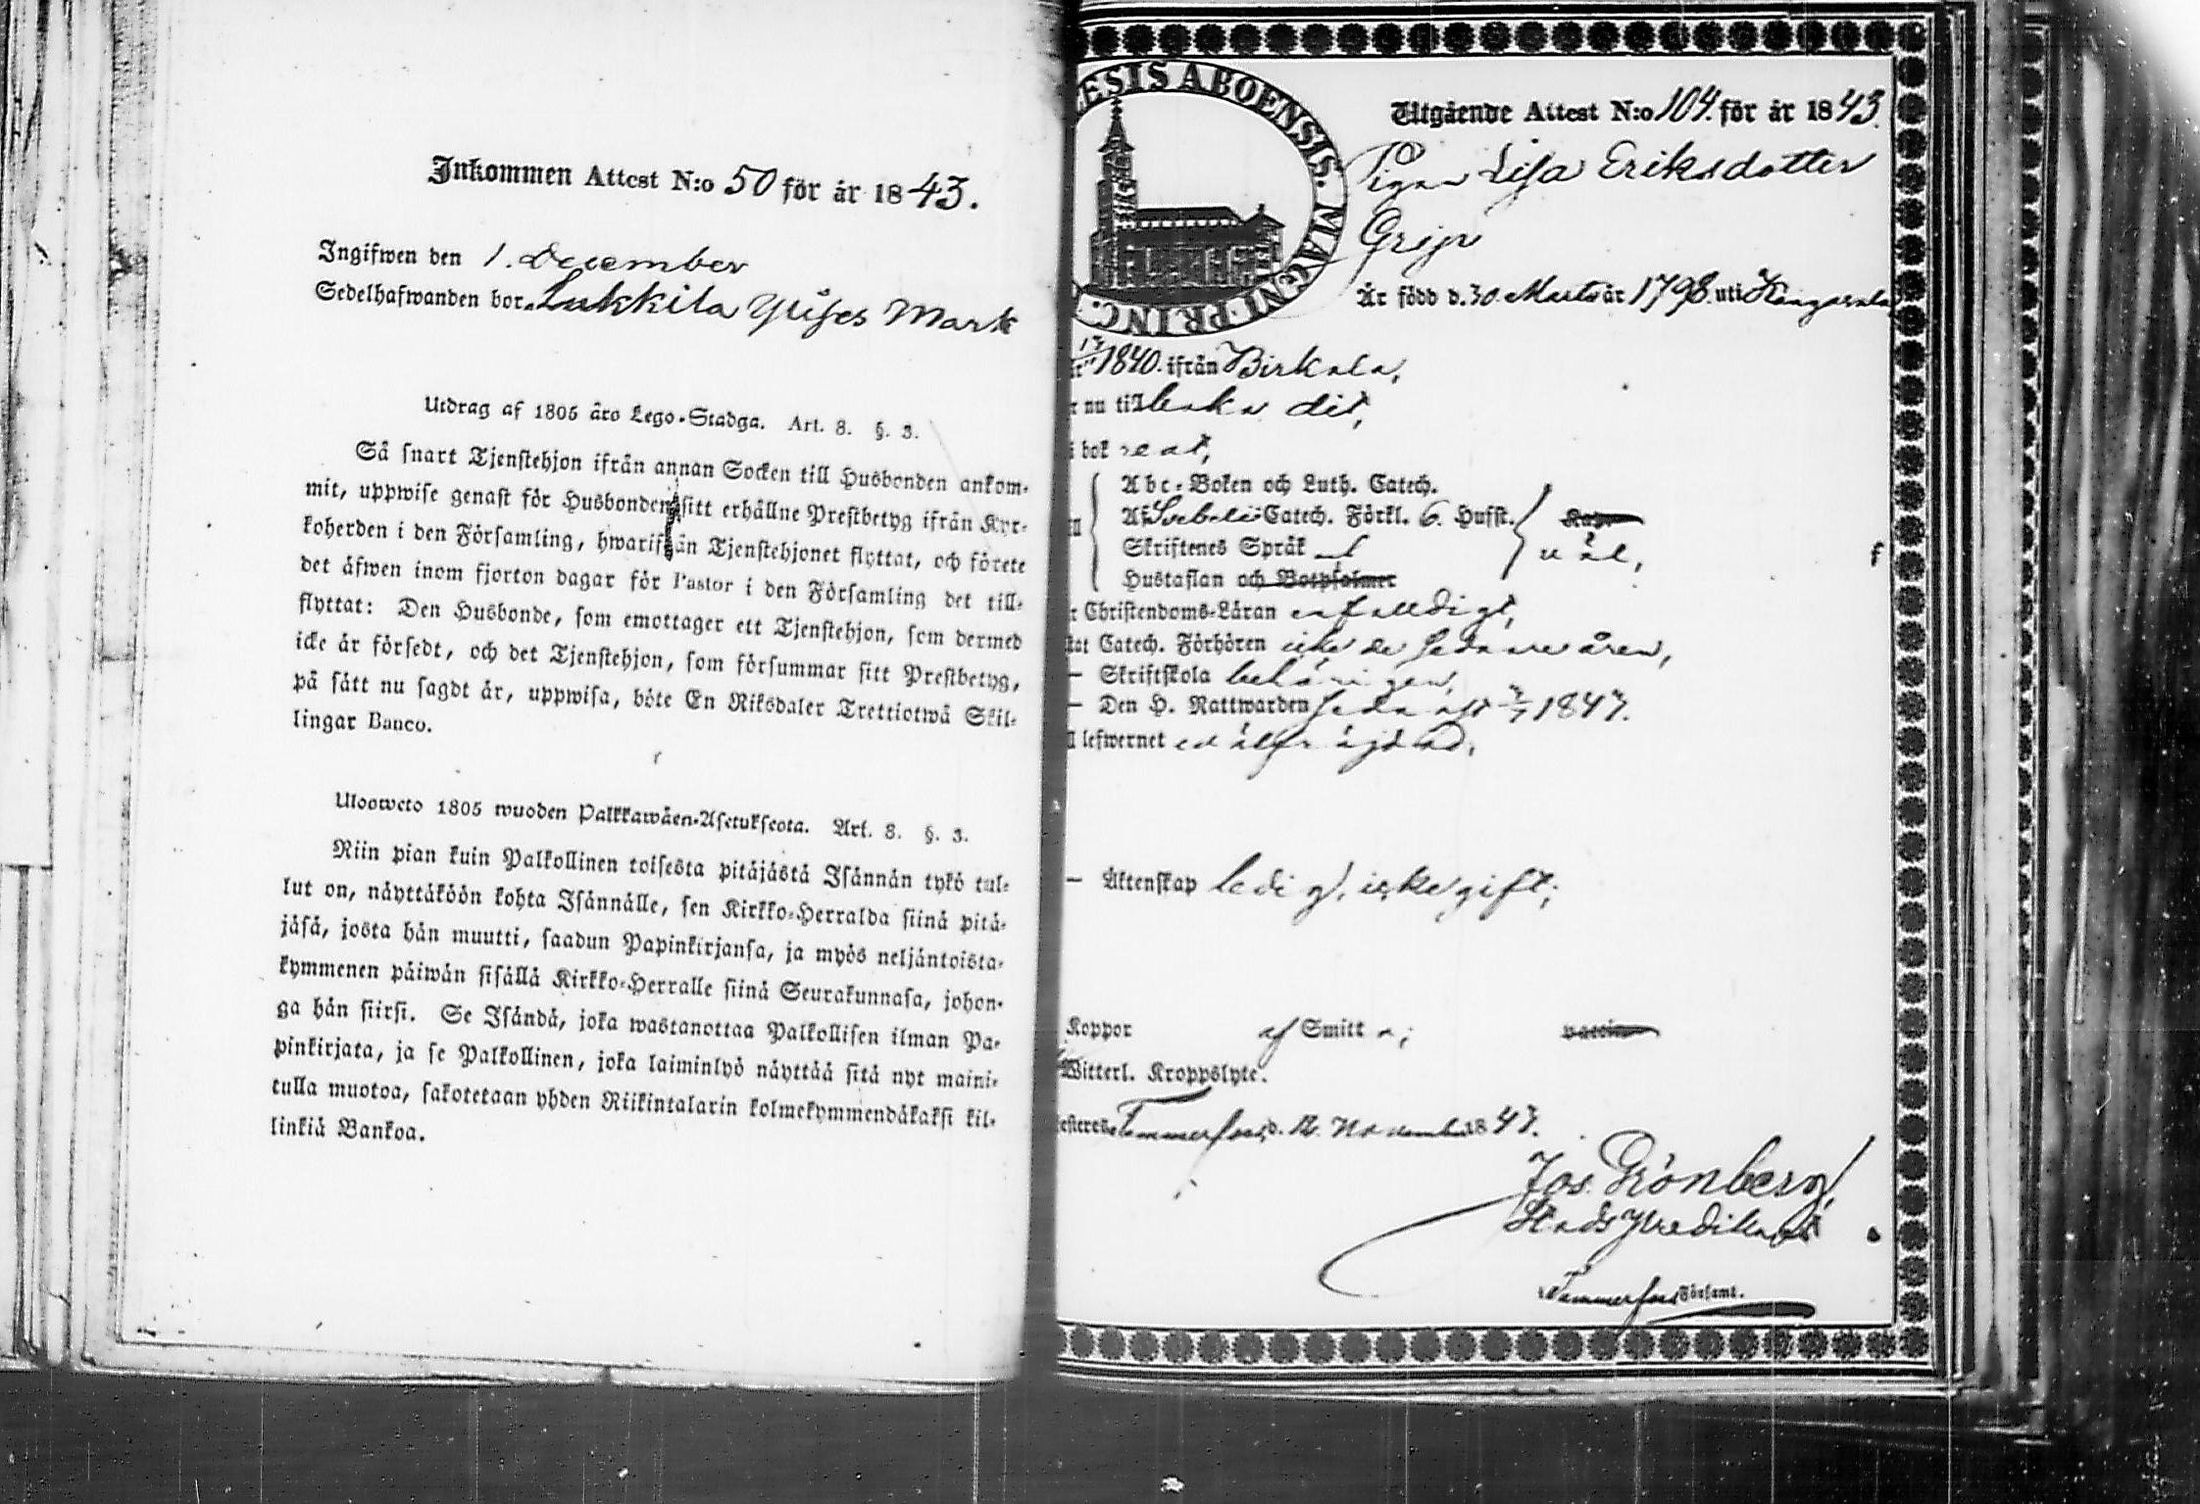 Inkommen Attest N:o 50 för år 1843.
Ingifwen den 1. December
Sedelhafwanden bor Lukkila Mark
Utdrag af 1805 års Lego-Stadga. Art. 8. §. 3.
Så snart Tjenstehjon ifrån annan Socken till Husbonden ankom-
mit, uppwise genast för Husbonden sitt erhållne Prestbetyg ifrån Kyr-
koherden i den Församling, hwarifrån Tjenstehjonet flyttat, och förete
det äfwen inom fjorton dagar för Pastor i den Församling det till-
flyttat: Den Husbonde, som emottager ett Tjenstehjon, som dermed
icke är försedt, och det Tjenstehjon, som försummar sitt Prestbetyg,
på sätt nu sagdt är, uppwisa, böte En Riksdaler Trettiotwå Skil-
lingar Banco.
Uloosweto 1805 wuoden Palkkawäen-Asetuksesta. Art. 8. §. 3.
Niin pian kuin Palkollinen toisesta pitäjästä Isännän tykö tul-
lut on, näyttäköön kohta Isännälle, sen Kirkko-Herralda siinä pitä-
jäsä, josta hän muutti, saadun Papinkirjansa, ja myös neljäntoista-
kymmenen päiwän sisällä Kirkko-Herralle siinä Seurakunnasa, johon-
ga hän siirsi. Se Isändä, joka wastanottaa Palkollisen ilman Pa-
pinkirjata, ja se Palkollinen, joka laiminlyö näyttää sitä nyt maini-
tulla muotoa, sakotetaan yhden Riikintalarin kolmekymmendäkaksi kil-
linkiä Bankoa.
ESIS ABOENSIS. MAGNI PRINC.
Utgående Attest N:o 104. för år 1843.
Pigan Lisa Eriksdotter
Grip
Är född d. 30 Marts år 1798. uti Kangasala
1840. ifrån Birkala,
nu till baka dit,
i bok
Abc-Boken och Luth. Catech.
Af Svebelii Catech. Förkl. 6. Husst.
Skriftenes Språk
väl,
Hustaflan och Botpsalmer
Christendoms-Läran enfalldigt,
Catech. Förhören icke de sednare åren,
— Skriftskola behörigen,
— Den H. Nattwarden sednast 1843.
lefwernet
— Äktenskap ledig, icke gift;
Koppor af Smitta;
Witterl. Kroppslyte.
Tammerfors, d. 12. November 1843.
Jos. Grönberg
Stads Predikant
Tammerfors Församl.